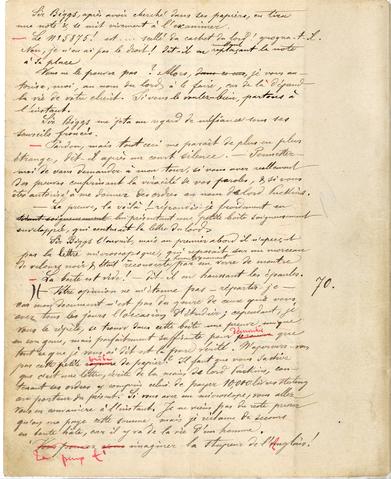 Sir Biggs, après avoir cherché dans ses papiers, en tira
une note et se mit vivement à l'examiner.
— Le Nº 5875! est... scellé du cachet du lord! grogna-t-il.
Non, je n'en ai pas le droit! dit-il en replaçant la note
à sa place
Vous ne le pouvez pas? Alors, je vous au-
torise, moi, au nom du lord, à le faire, car de là dépend
la vie de votre client. Si vous le voulez bien, partons à
l'instant.
Sir Biggs me jeta un regard de méfiance sous ses
sourcils froncés.
— Pardon, mais tout ceci me paraît de plus en plus
étrange, dit-il après un court silence. — Permettez-
moi de vous demander à mon tour, si vous avez réellement
des preuves confirmant la véracité de vos paroles, & si vous
êtes autorisé à me donner des ordres au nom de lord
— La preuve, la voilà! répondis-je froidement en
lui présentant une petite boîte soigneusement
enveloppée, qui contenait la lettre du lord.
Sir Biggs l'ouvrit, mais au premier abord il n'aperçut
pas la lettre microscopique, qui reposait sur un morceau
de velours noir & était recouverte par un verre de montre
— La boîte est vide! — dit-il en haussant les épaules.
— Votre opinion ne m'étonne pas — repartis-je —
car mon document n'est pas du genre de ceux que vous
avez tous les jours l'occasion d'étudier; cependant, je
vous le répète, se trouve dans cette boîte une preuve unique
en son genre, mais parfaitement suffisante pour que
tout ce que je vous ai dit est la pure vérité. N'ouvrez
pas cette petite boîte Il faut que vous sachiez
que c'est une lettre écrite de la main de lord con-
tenant ses ordres y compris celui de payer 10,000 livres sterling
au porteur du présent. Si vous avez un microscope, vous allez
vous en convaincre à l'instant. Je ne viens pas de reste pour
qu'on me paye cette somme, mais je réclame du secours
en toute hâte, car il y va de la vie d'un homme.
imaginer la stupeur de l'Anglais!
70.